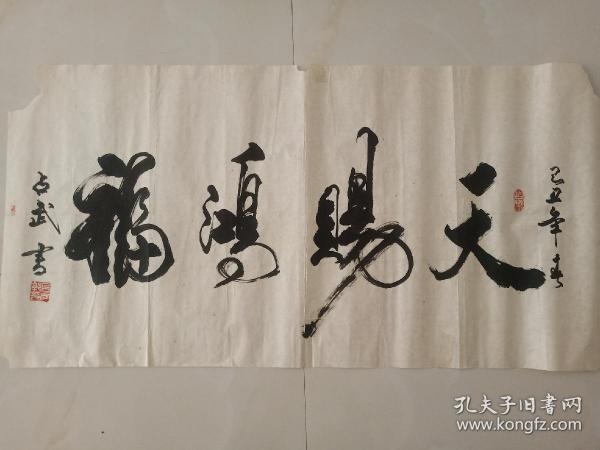 己丑年春
天赐鸿福
占武书
孔夫子旧书网
www.kongfz.com